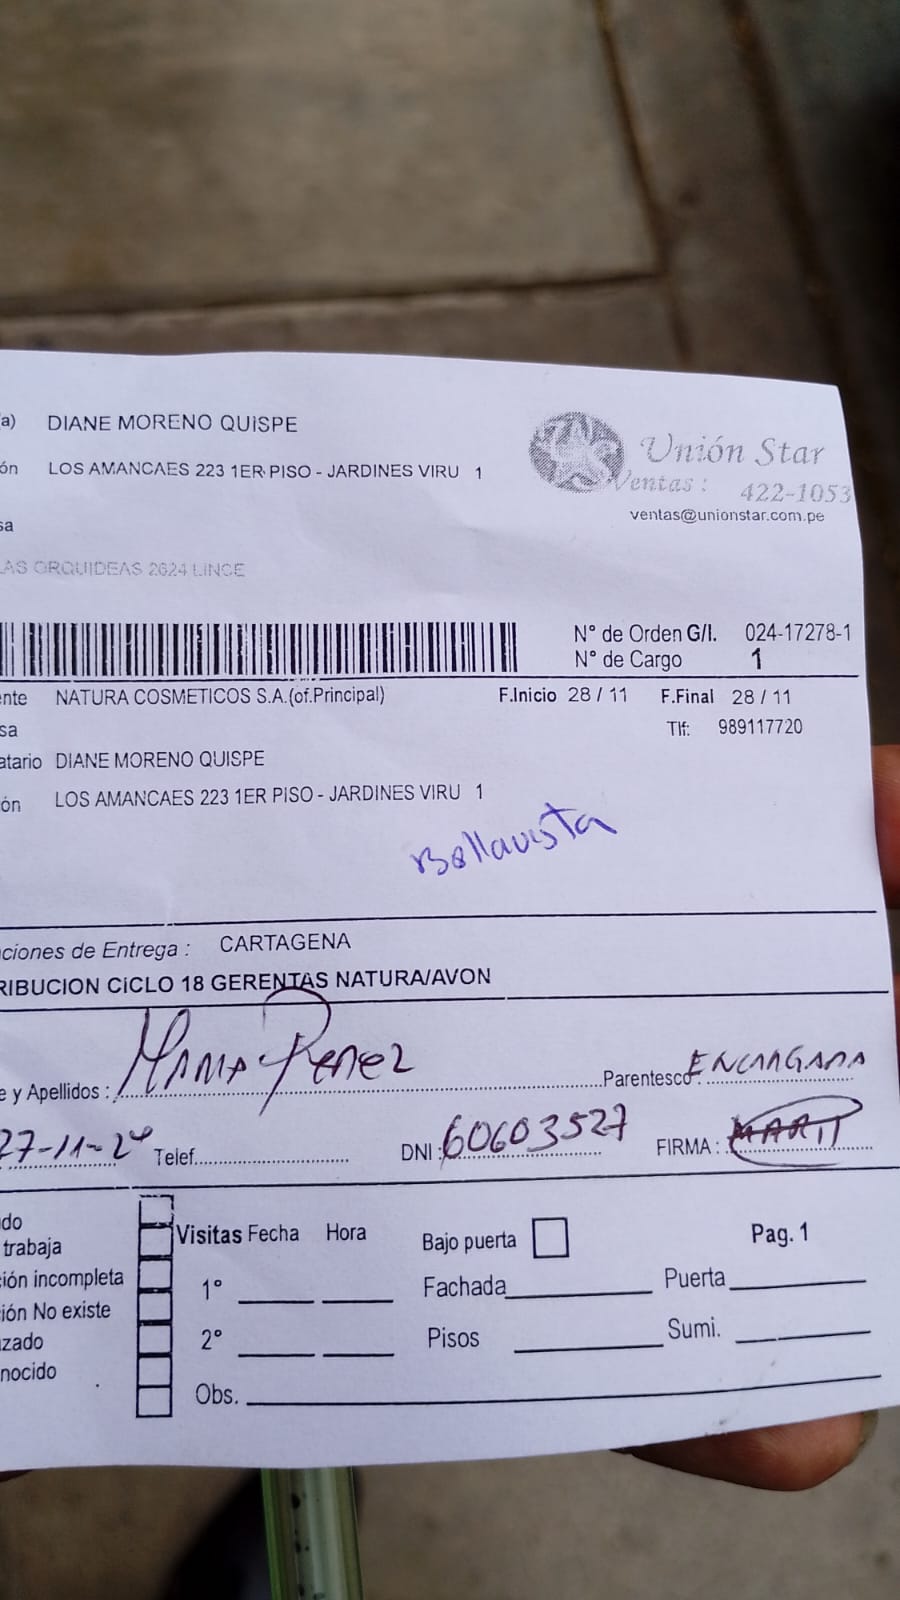 a) DIANE MORENO QUISPE
ón LOS AMANCAES 223 1ER PISO - JARDINES VIRU 1
Unión Star
Ventas : 422-1053
ventas@unionstar.com.pe
sa
LAS ORQUIDEAS 2624 LINCE
N° de Orden G/I. 024-17278-1
N° de Cargo 1
ente NATURA COSMETICOS S.A.(of.Principal) F.Inicio 28 / 11 F.Final 28 / 11
sa Tlf: 989117720
atario DIANE MORENO QUISPE
ón LOS AMANCAES 223 1ER PISO - JARDINES VIRU 1
Bellavista
ciones de Entrega : CARTAGENA
RIBUCION CICLO 18 GERENTAS NATURA/AVON
e y Apellidos : Perez Parentesco : ENCARGADA
27-11-24 Telef. DNI : 60603527 FIRMA :
do
trabaja
ión incompleta
ión No existe
zado
nocido
Visitas Fecha Hora
1°
2°
Obs.
Bajo puerta Pag. 1
Fachada Puerta
Pisos Sumi.